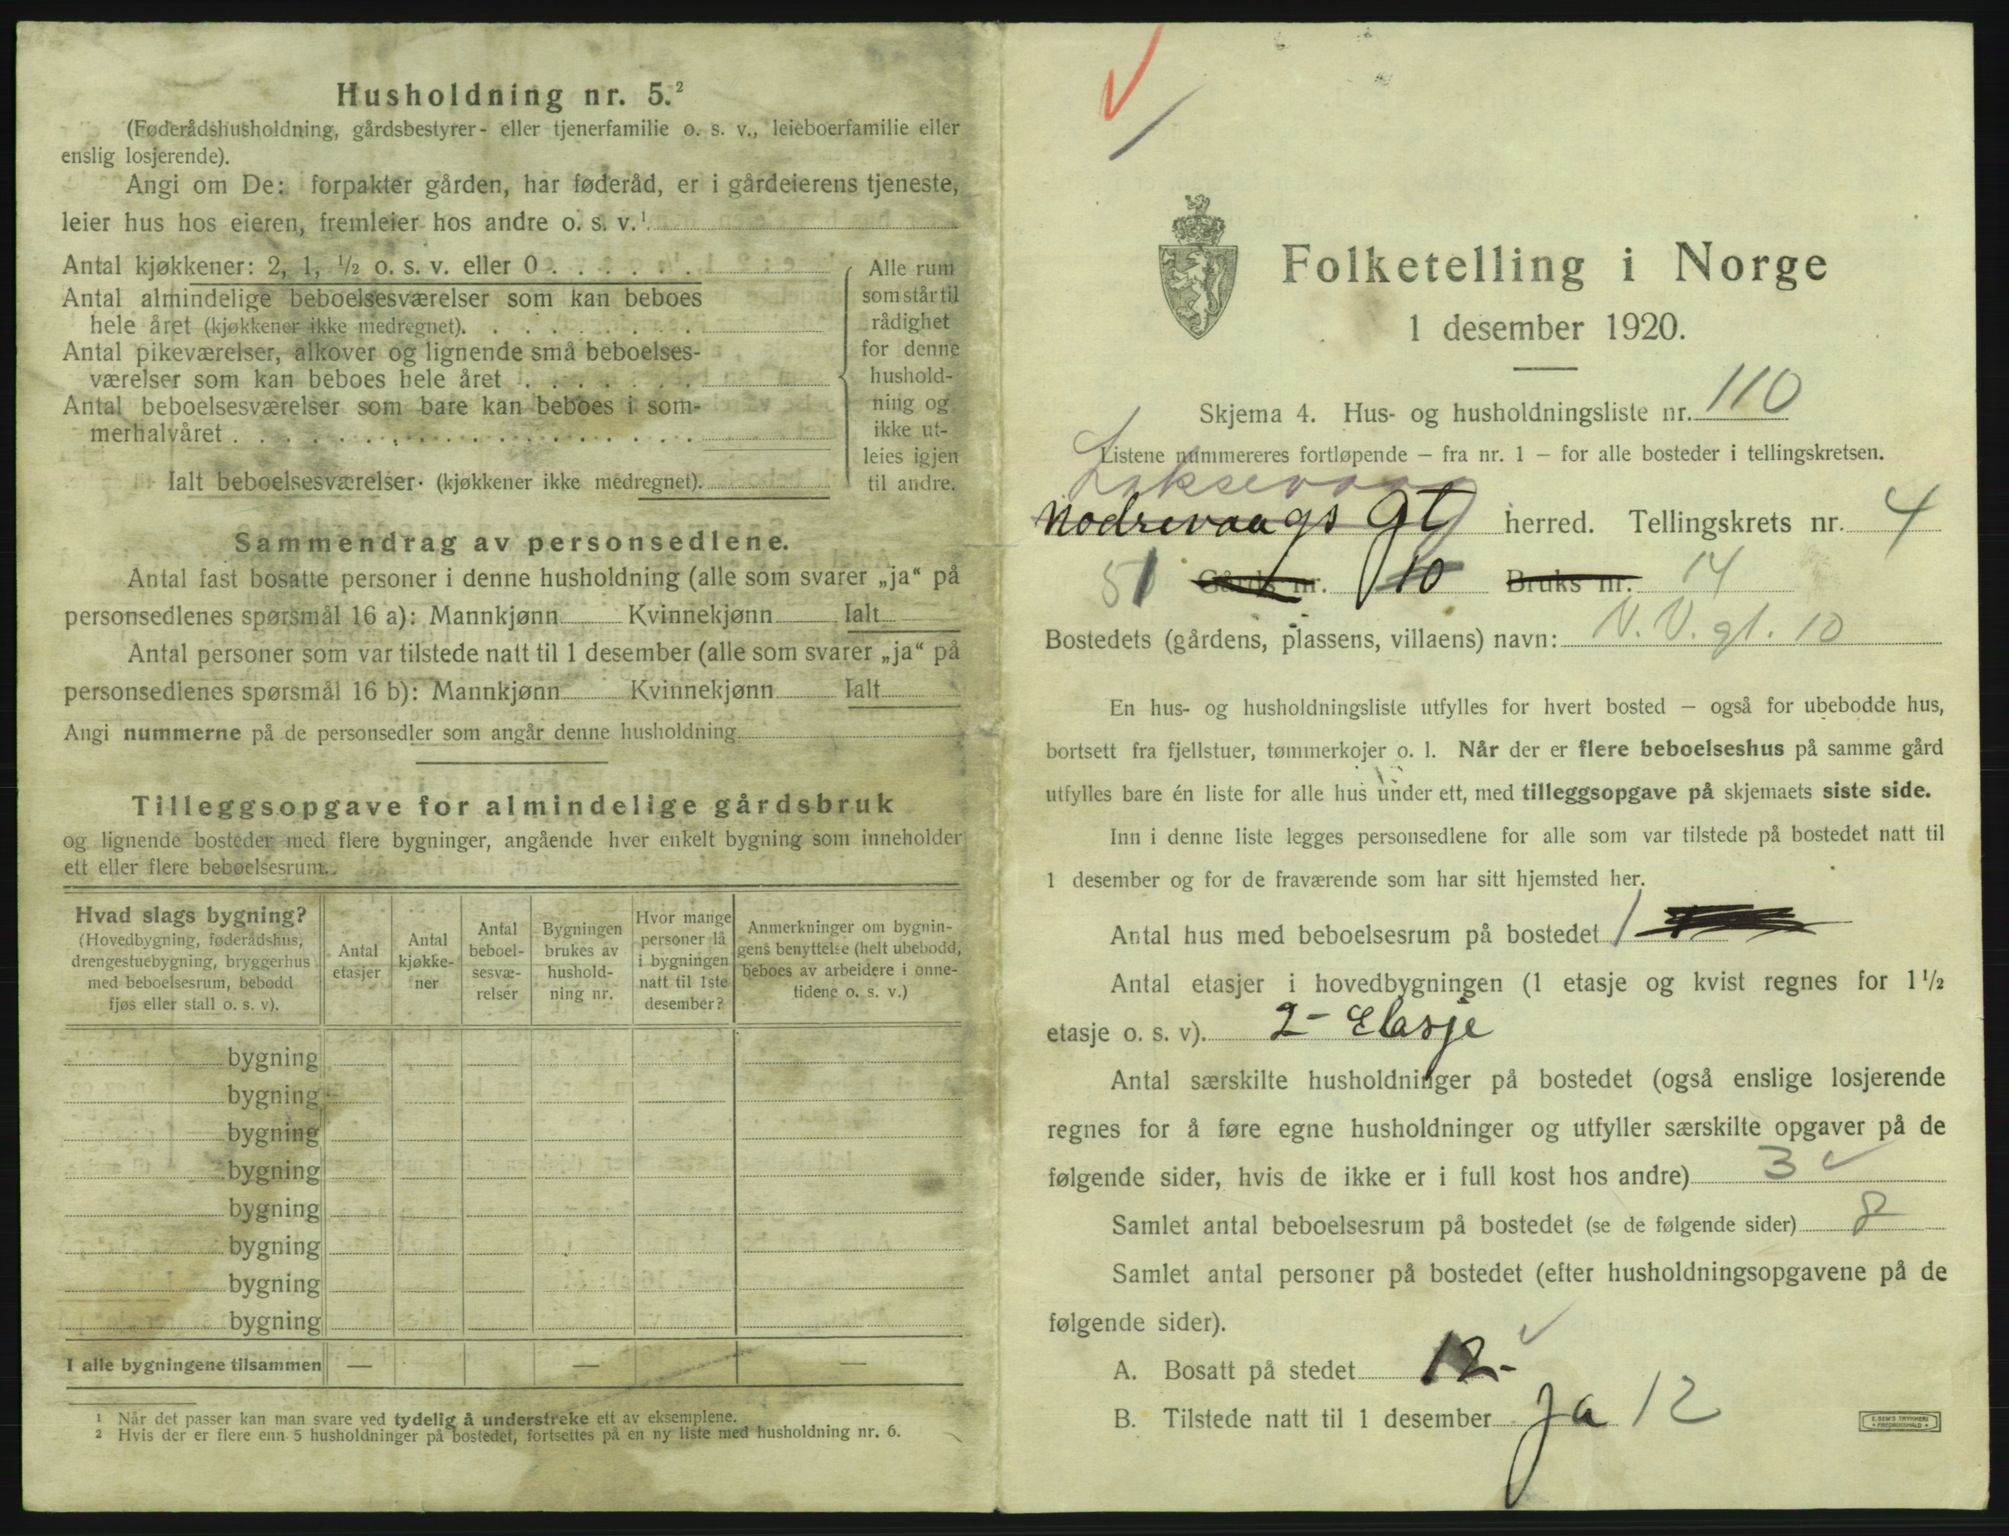 Husholdning nr. 5.²
(Føderådshusholdning, gårdsbestyrer- eller tjenerfamilie o. s. v., leieboerfamilie eller
enslig losjerende).
Angi om De: forpakter gården, har føderåd, er i gårdeierens tjeneste,
leier hus hos eieren, fremleier hos andre o. s. v.¹
Antal kjøkkener: 2, 1, ½ o. s. v. eller 0 . . . . . .
Antal almindelige beboelsesværelser som kan beboes
hele året (kjøkkener ikke medregnet). . . . . . . . .
Antal pikeværelser, alkover og lignende små beboelses-
værelser som kan beboes hele året . . . . . . .
Antal beboelsesværelser som bare kan beboes i som-
merhalvåret . . . . . . . . . . . . . . . . . .
Alle rum
som står til
rådighet
for denne
hushold-
ning og
ikke ut-
leies igjen
til andre.
Ialt beboelsesværelser (kjøkkener ikke medregnet).
Sammendrag av personsedlene.
Antal fast bosatte personer i denne husholdning (alle som svarer „ja“ på
personsedlenes spørsmål 16 a): Mannkjønn Kvinnekjønn Ialt
Antal personer som var tilstede natt til 1 desember (alle som svarer „ja“ på
personsedlenes spørsmål 16 b): Mannkjønn Kvinnekjønn Ialt
Angi nummerne på de personsedler som angår denne husholdning
Tilleggsopgave for almindelige gårdsbruk
og lignende bosteder med flere bygninger, angående hver enkelt bygning som inneholder
ett eller flere beboelsesrum.
Hvad slags bygning?
(Hovedbygning, føderådshus,
drengestuebygning, bryggerhus
med beboelsesrum, bebodd
fjøs eller stall o. s. v).
Antal
etasjer
Antal
kjøkke-
ner
Antal
beboel-
sesvæ-
relser
Bygningen
brukes av
hushold-
ning nr.
Hvor mange
personer lå
i bygningen
natt til 1ste
desember?
Anmerkninger om bygnin-
gens benyttelse (helt ubebodd,
beboes av arbeidere i onne-
tidene o. s. v.)
bygning
bygning
bygning
bygning
bygning
bygning
bygning
bygning
I alle bygningene tilsammen — — —
¹ Når det passer kan man svare ved tydelig å understreke ett av eksemplene.
² Hvis der er flere enn 5 husholdninger på bostedet, fortsettes på en ny liste med husholdning nr. 6.
Folketelling i Norge
1 desember 1920.
Skjema 4. Hus- og husholdningsliste nr. 110
Listene nummereres fortløpende – fra nr. 1 – for alle bosteder i tellingskretsen.
Laksevaag
Nodrevaags gt herred. Tellingskrets nr. 4
51 Gårds nr. 10 Bruks nr. 14
Bostedets (gårdens, plassens, villaens) navn: N. V. gt. 10
En hus- og husholdningsliste utfylles for hvert bosted – også for ubebodde hus,
bortsett fra fjellstuer, tømmerkojer o. l. Når der er flere beboelseshus på samme gård
utfylles bare én liste for alle hus under ett, med tilleggsopgave på skjemaets siste side.
Inn i denne liste legges personsedlene for alle som var tilstede på bostedet natt til
1 desember og for de fraværende som har sitt hjemsted her.
Antal hus med beboelsesrum på bostedet 1
Antal etasjer i hovedbygningen (1 etasje og kvist regnes for 1½
etasje o. s. v). 2- Etasje
Antal særskilte husholdninger på bostedet (også enslige losjerende
regnes for å føre egne husholdninger og utfyller særskilte opgaver på de
følgende sider, hvis de ikke er i full kost hos andre) 3
Samlet antal beboelsesrum på bostedet (se de følgende sider) 8
Samlet antal personer på bostedet (efter husholdningsopgavene på de
følgende sider).
A. Bosatt på stedet 12-
B. Tilstede natt til 1 desember ja 12
E. SEM'S TRYKKERI
FREDRIKSHALD